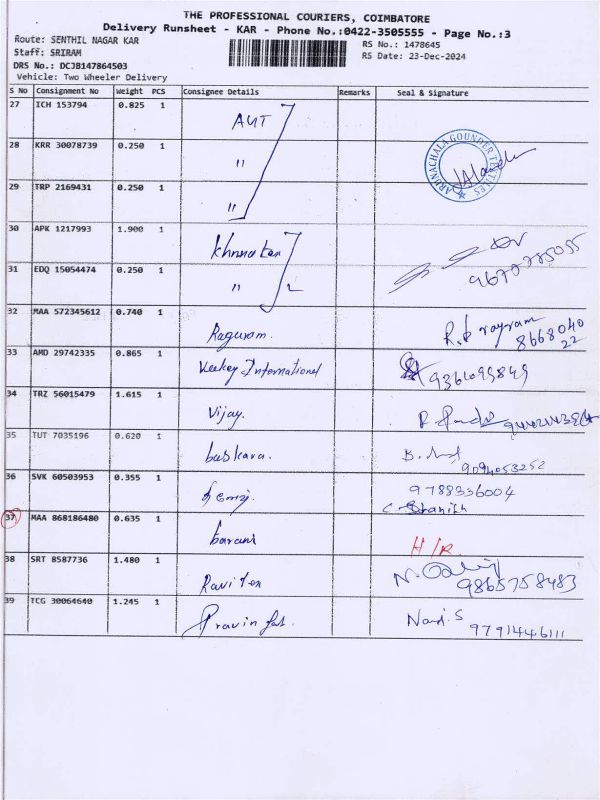 THE PROFESSIONAL COURIERS, COIMBATORE
Delivery Runsheet - KAR - Phone No.:0422-3505555 - Page No.:3
Route: SENTHIL NAGAR KAR RS No.: 1478645
Staff: SRIRAM RS Date: 23-Dec-2024
DRS No.: DCJB147864503
Vehicle: Two Wheeler Delivery
S No Consignment No Weight PCS Consignee Details Remarks Seal & Signature
27 ICH 153794 0.825 1 AGT
28 KRR 30078739 0.250 1 " ARUNACHALA GOUNDER TEXTILES
29 TRP 2169431 0.250 1 "
30 APK 1217993 1.900 1
31 EDQ 15054474 0.250 1 "
32 MAA 572345612 0.740 1 Raguram.
8668040
22
33 AMD 29742335 0.865 1 Veekey International 9361099849
34 TRZ 56015479 1.615 1 Vijay.
35 TUT 7035196 0.620 1 baskara. 9094053252
36 SVK 60503953 0.355 1 9788336004
37 MAA 868186480 0.635 1 barani H/R
38 SRT 8587736 1.480 1 Ravi Tex 9865758483
39 TCG 30064640 1.245 1 Pravin Nandi.S 9791446111